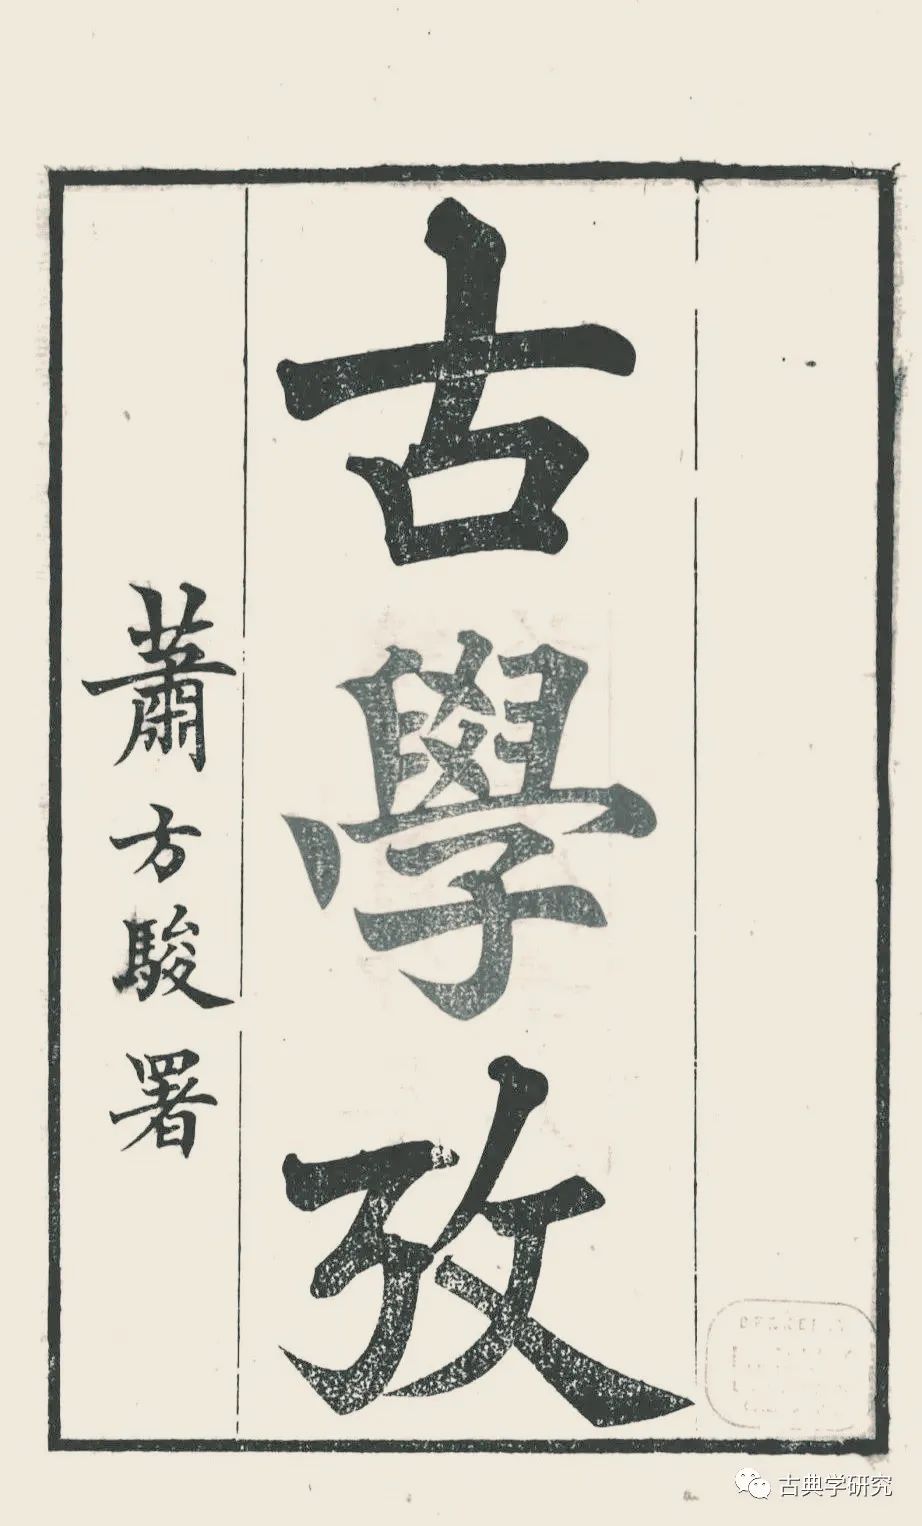 古學攷
蕭方駿署
古典学研究